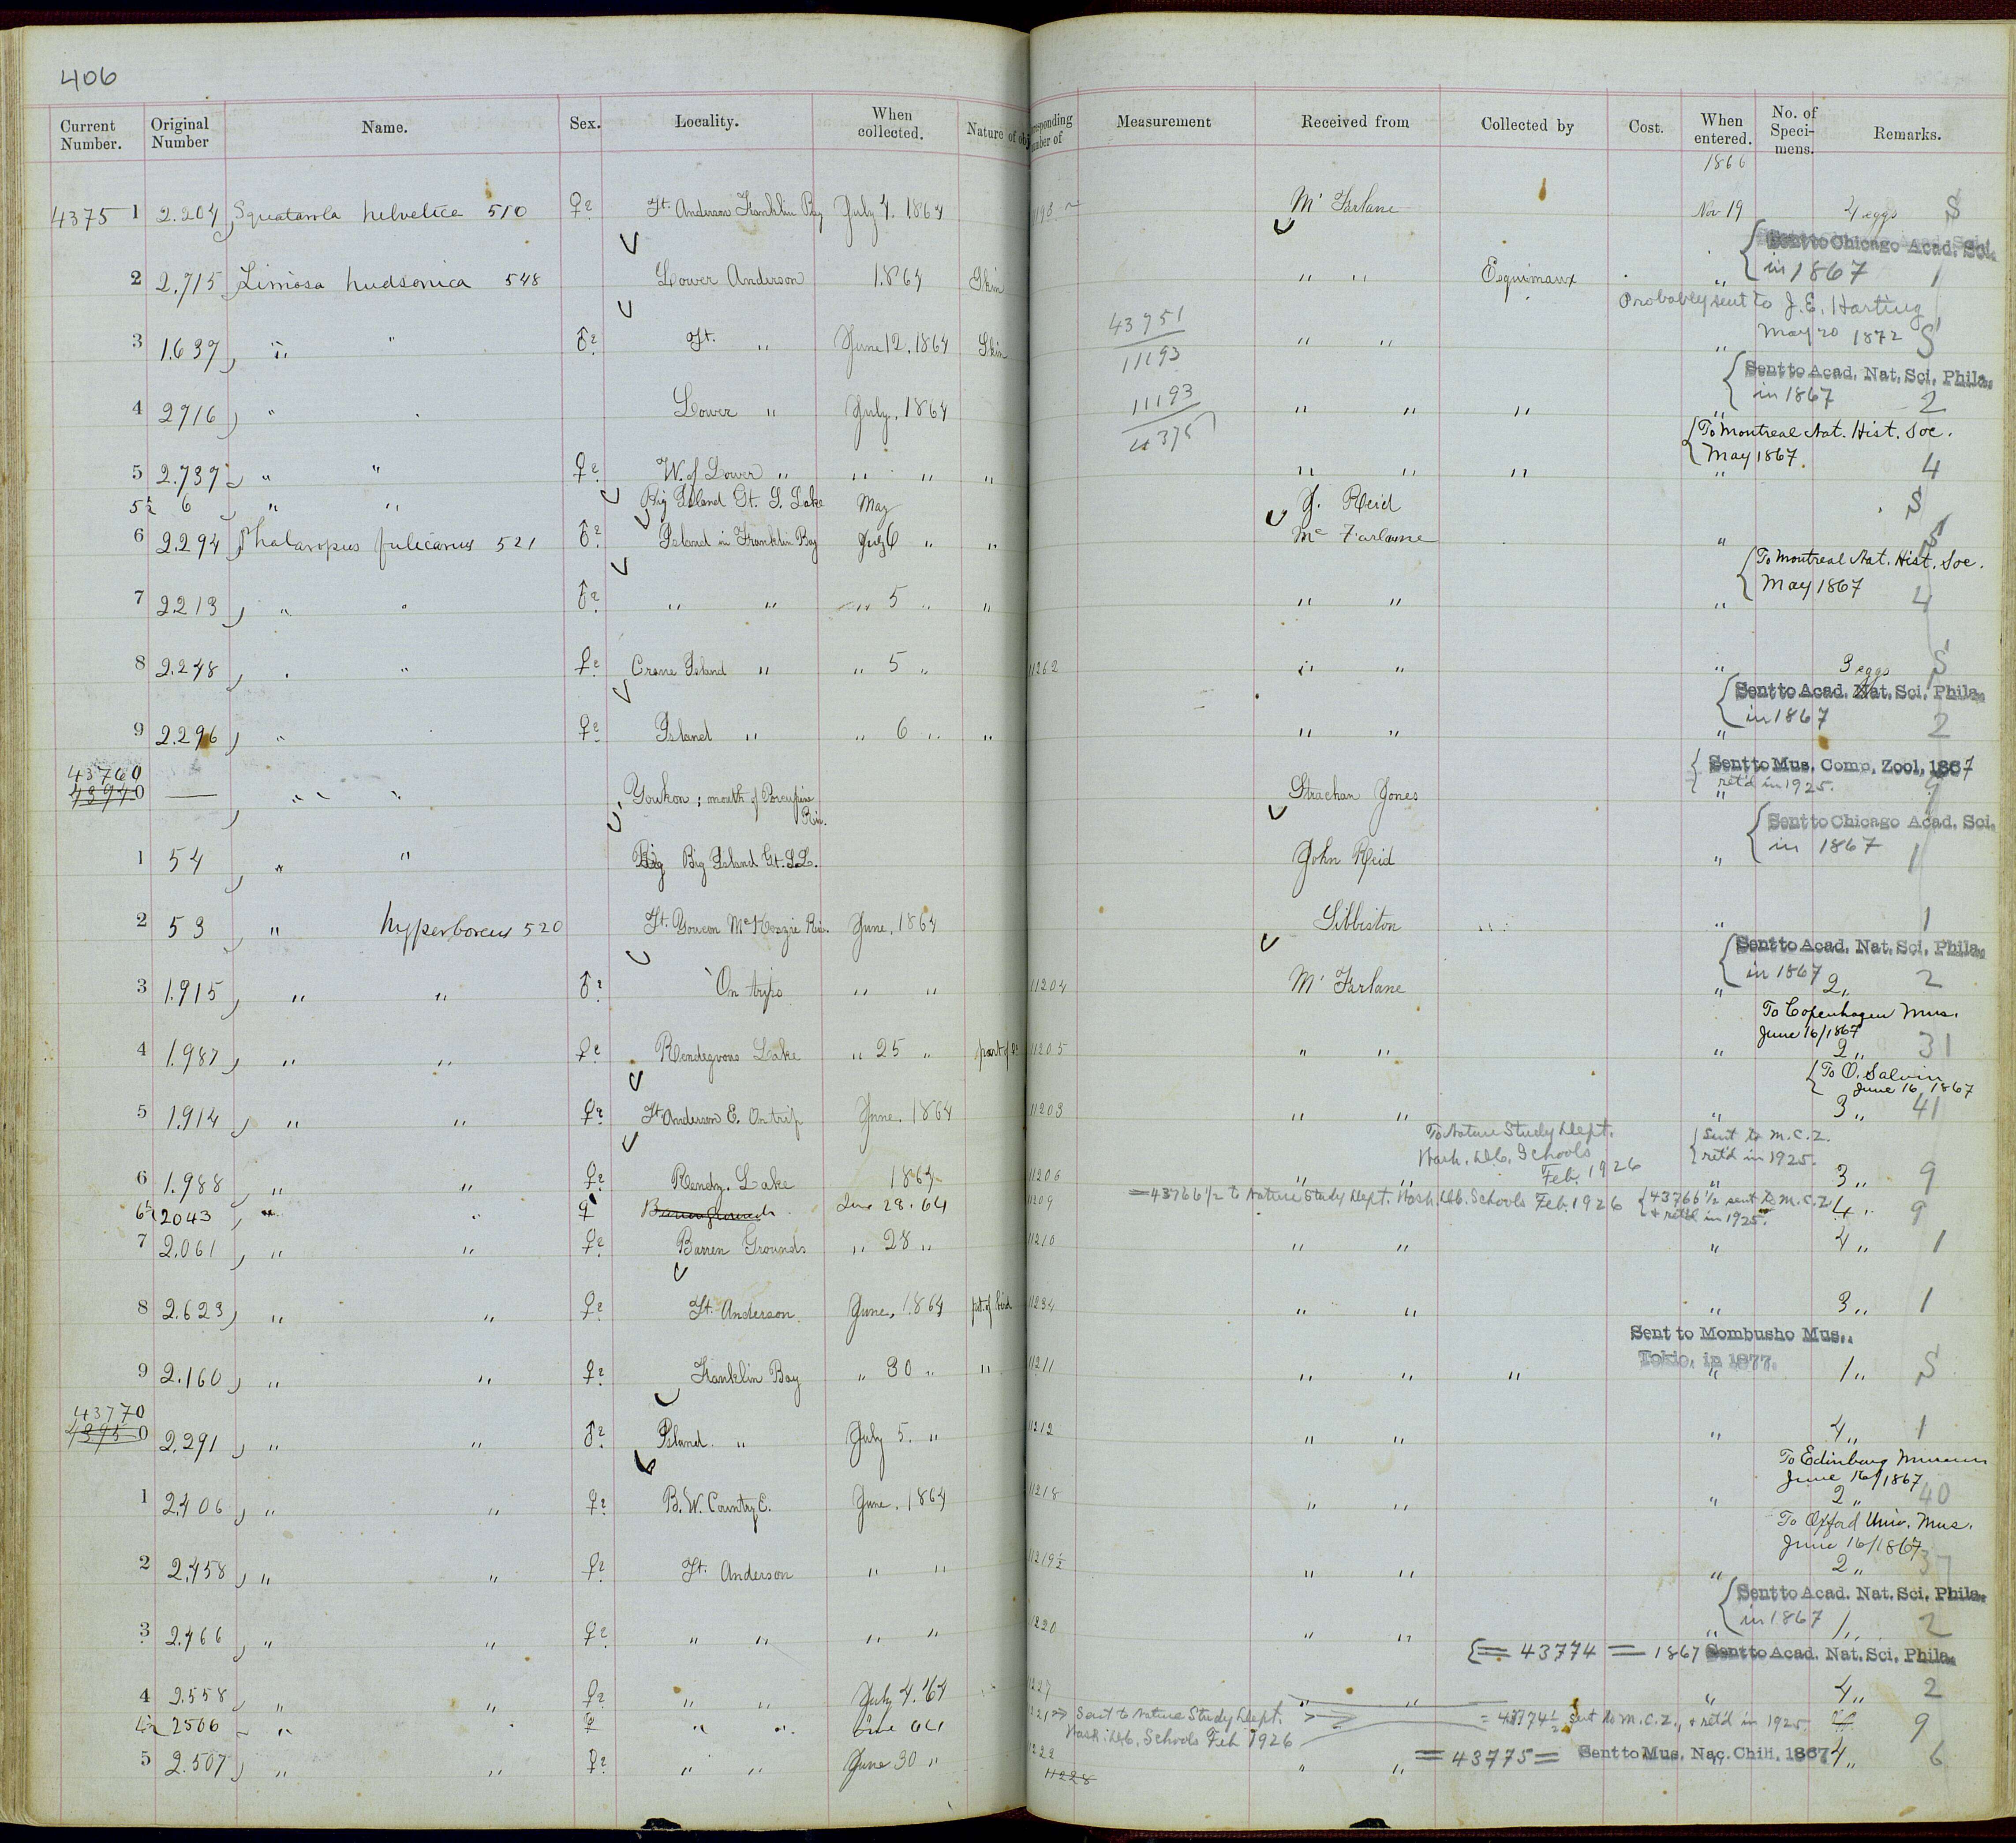 406
Current Number. Original Number Name. Sex. Locality. When collected. Nature of obj responding umber of Measurement Received from Collected by Cost. When entered. No. of Speci-mens. Remarks.
1866
4375 1 2.204 Squatarola helvetica 510 ♀? Ft. Anderson Franklin Bay July 4. 1864 1193 Mc Farlane Nov 19 4 eggs S
Sent to Chicago Acad. Sci.
in 1867
2 2.715 Limosa hudsonica 548 Lower Anderson 1864 Skin " " Esquimaux " 1
Probably sent to J.E. Harting
May 20 1872 S
43751
11193
3 1.637 " " ♂? Ft. " June 12. 1864 Skin " " "
Sent to Acad. Nat. Sci. Phila.
in 1867
11193
4375
4 2716 " Lower " July. 1864 " " " " 2
To Montreal Nat. Hist. Soc.
May 1867
5 2.737 " " ♀? W. of Lower " " " " " " " " 4
5½ 6 " " Big Island Gt. S. Lake May J. Reid S
6 2.294 Phalaropus fulicarius 521 ♂? Island in Franklin Bay July 6 " " Mc Farlane " S
To Montreal Nat. Hist. Soc.
May 1867
7 2213 " " ♂? " " " 5 " " " " " 4
8 2.248 " " ♀? Crane Island " " 5 " 11262 " " " 3 eggs S
Sent to Acad. Nat. Sci. Phila.
in 1867
9 2.296 " ♀? Island " " 6 " " " " " 2
43760
Sent to Mus. Comp. Zool, 1867
ret'd in 1925.
0 " " Youkon ; mouth of Porcupine Riv. Strachan Jones " 9
Sent to Chicago Acad. Sci.
in 1867
1 54 " " Big Big Island Gt. S.L. John Reid " 1
2 53 " hyperboreus 520 Ft. Youcon McKenzie Riv. June. 1864 Sibbiston " 1
Sent to Acad. Nat. Sci. Phila.
in 1867
3 1.915 " " ♂? On trips " " 11204 Mc Farlane " 2 " 2
To Copenhagen Mus.
June 16/1867
4 1.987 " " ♀? Rendezvous Lake " 25 " part of 11205 " " " 2 " 31
To O. Salvin
June 16, 1867
5 1.914 " " ♀? Ft. Anderson E. On trip June. 1864 11203 " " " 3 " 41
To Nature Study Dept.
Wash. D.C. Schools
Feb. 1926
Sent to M.C.Z.
ret'd in 1925.
6 1.988 " " ♀? Rendz. Lake 1864 11206 " " " 3 " 9
6½ 2043 " " ♀ Barren grounds June 28. 64 11209 = 43766½ to Nature Study Dept. Wash. D.C. Schools Feb. 1926 43766½ sent to M.C.Z. 4 " 9
+ ret'd in 1925.
7 2.061 " " ♀? Barren Grounds " 28 " 11210 " " " 4 " 1
8 2.623 " " ♀? Ft. Anderson June. 1864 pt. of bird 11234 " " " 3 " 1
Sent to Mombusho Mus.,
Tokio, in 1877.
9 2.160 " " ♀? Franklin Bay " 30 " " 11211 " " " " 1 " S
43770
0 2.291 " " ♂? Island " July 5. " 11212 " " " 4 " 1
To Edinburg Museum
June 16/1867
1 2406 " " ♀? B.W. Country E. June. 1864 11218 " " " 2 " 40
To Oxford Univ. Mus.
June 16/1867
2 2.458 " " ♀? Ft. Anderson " " 11219½ " " " 2 " 37
Sent to Acad. Nat. Sci. Phila.
in 1867
3 2.466 " " ♀? " " " " 1220 " " " 1 " 2
= 43774 = 1867 Sent to Acad. Nat. Sci. Phila.
4 2.558 " " ♀? " " July 4. '64 1227 " " " 4 " 2
4½ 2506 " " ♀ " " June 64 Sent to Nature Study Dept. = 43774½ sent to M.C.Z., + ret'd in 1925. 9
Wash. D.C. Schools Feb 1926
5 2.507 " " ♀? " " June 30 " 1222 " " = 43775 = Sent to Mus. Nac. Chili, 1867 4 " 6
11228